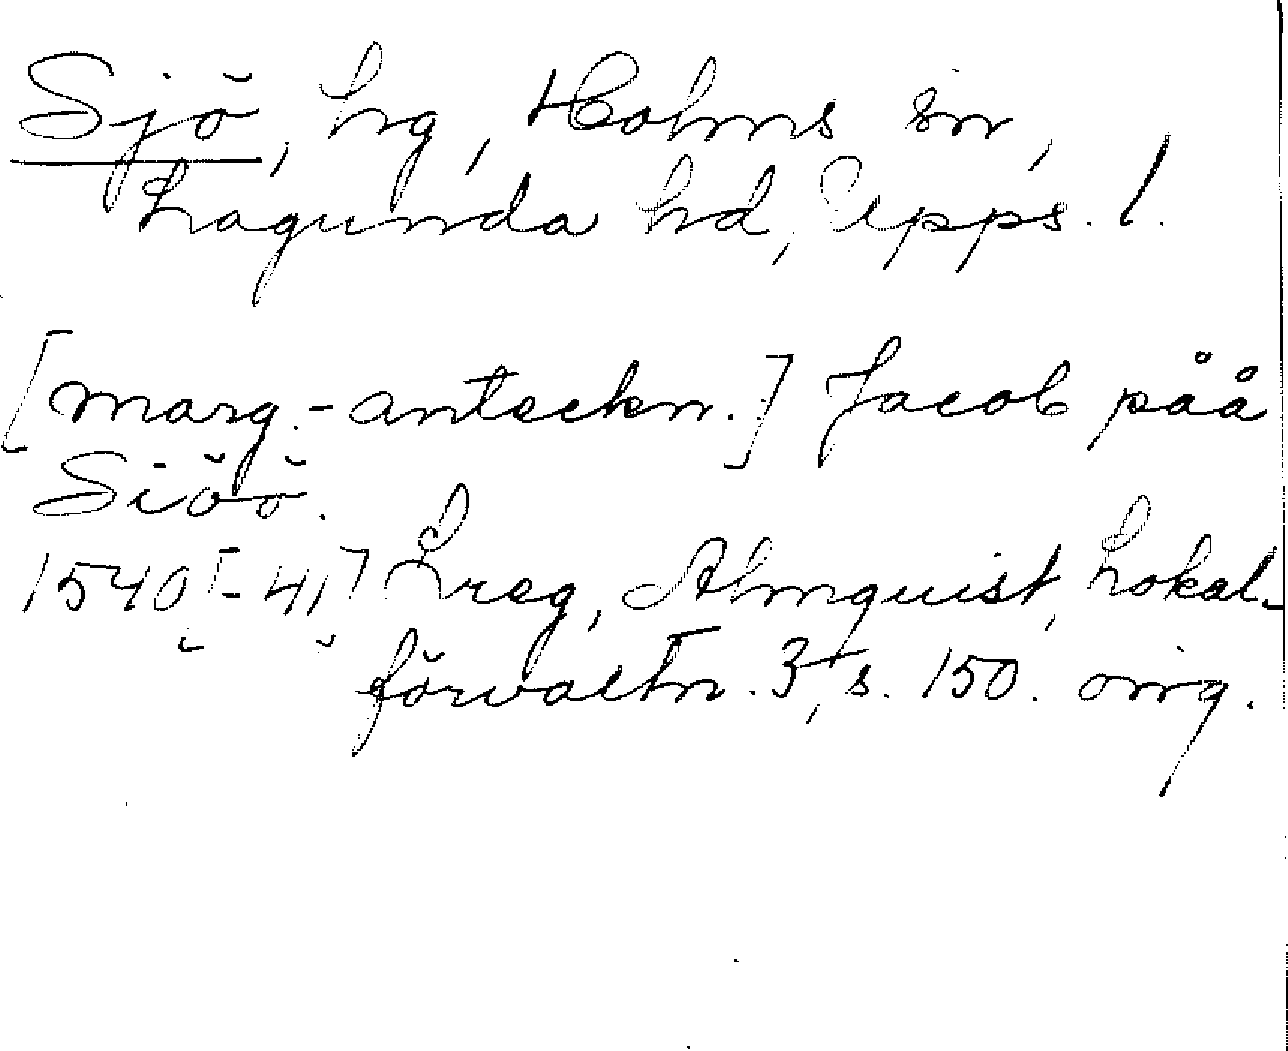 Sjö, hg, Holms sn,
Lagunda hd, Upps. l.
[marg.-anteckn.] Jacob påå
Siöö.
1540[-41] Lreg, Almquist, Lokal-
förvaltn. 3, s. 150. orig.